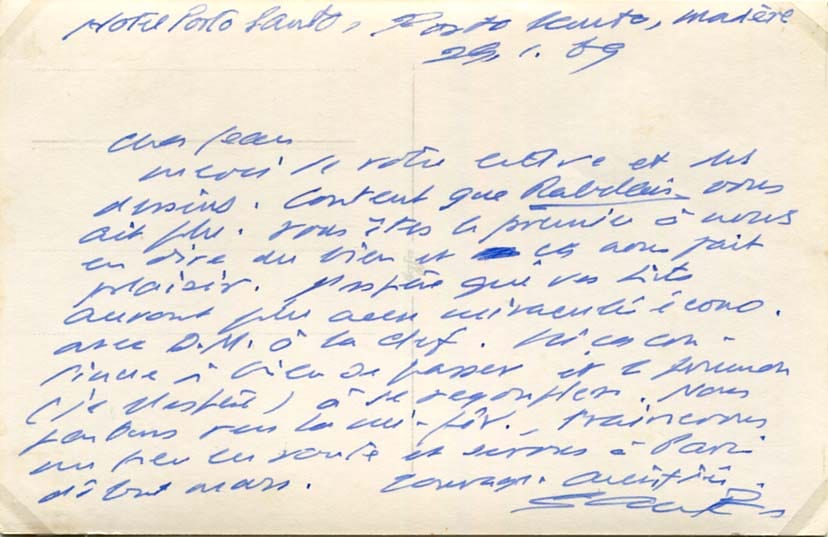 Hotel Porto Santo, Porto Santo, Madère
29. 1. 69
Cher Jean
merci de votre lettre et des
dessins. Content que Rabelais vous
ait plu. Vous êtes le premier à nous
en dire du bien et ça nous fait
plaisir. J'espère que vos
auront plu aux miraculés écono.
avec D.M. à la clef. Ici ça con-
tinue à bien se passer et le
(je l'espère) à se regonfler. Nous
partons vers la mi-fév., traînerons
un peu en route et serons à Paris
début mars. Courage. Amitiés.